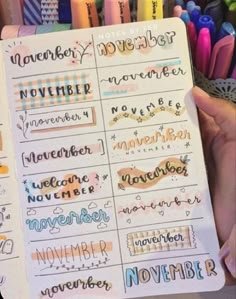 november
NOVEMBER
NOVEMBER
november
november
NOVEMBER
november
november
NOVEMBER
welcome
NOVEMBER
november
november
november
NOVEMBER
november
november
NOVEMBER